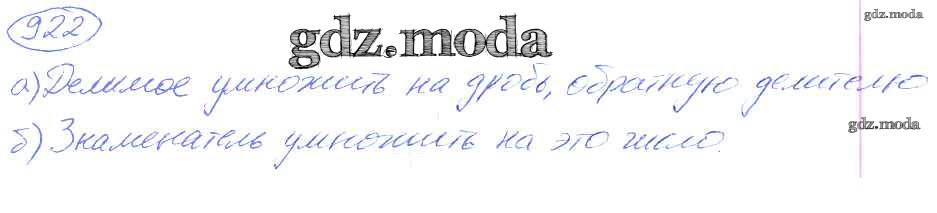 922
gdz.moda
gdz.moda
а) Делимое умножить на дробь, обратную делителю
б) Знаменатель умножить на это число.
gdz.moda